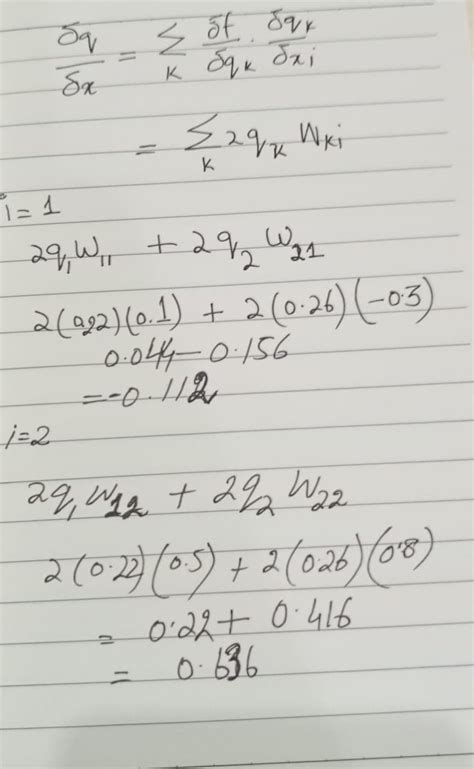 δq/δx = Σ_K δf/δq_K · δq_K/δx_i
= Σ_K 2q_K W_Ki
i=1
2q_1 W_11 + 2q_2 W_21
2(0.22)(0.1) + 2(0.26)(-0.3)
0.044 - 0.156
= -0.112
i=2
2q_1 W_12 + 2q_2 W_22
2(0.22)(0.5) + 2(0.26)(0.8)
= 0.22 + 0.416
= 0.636